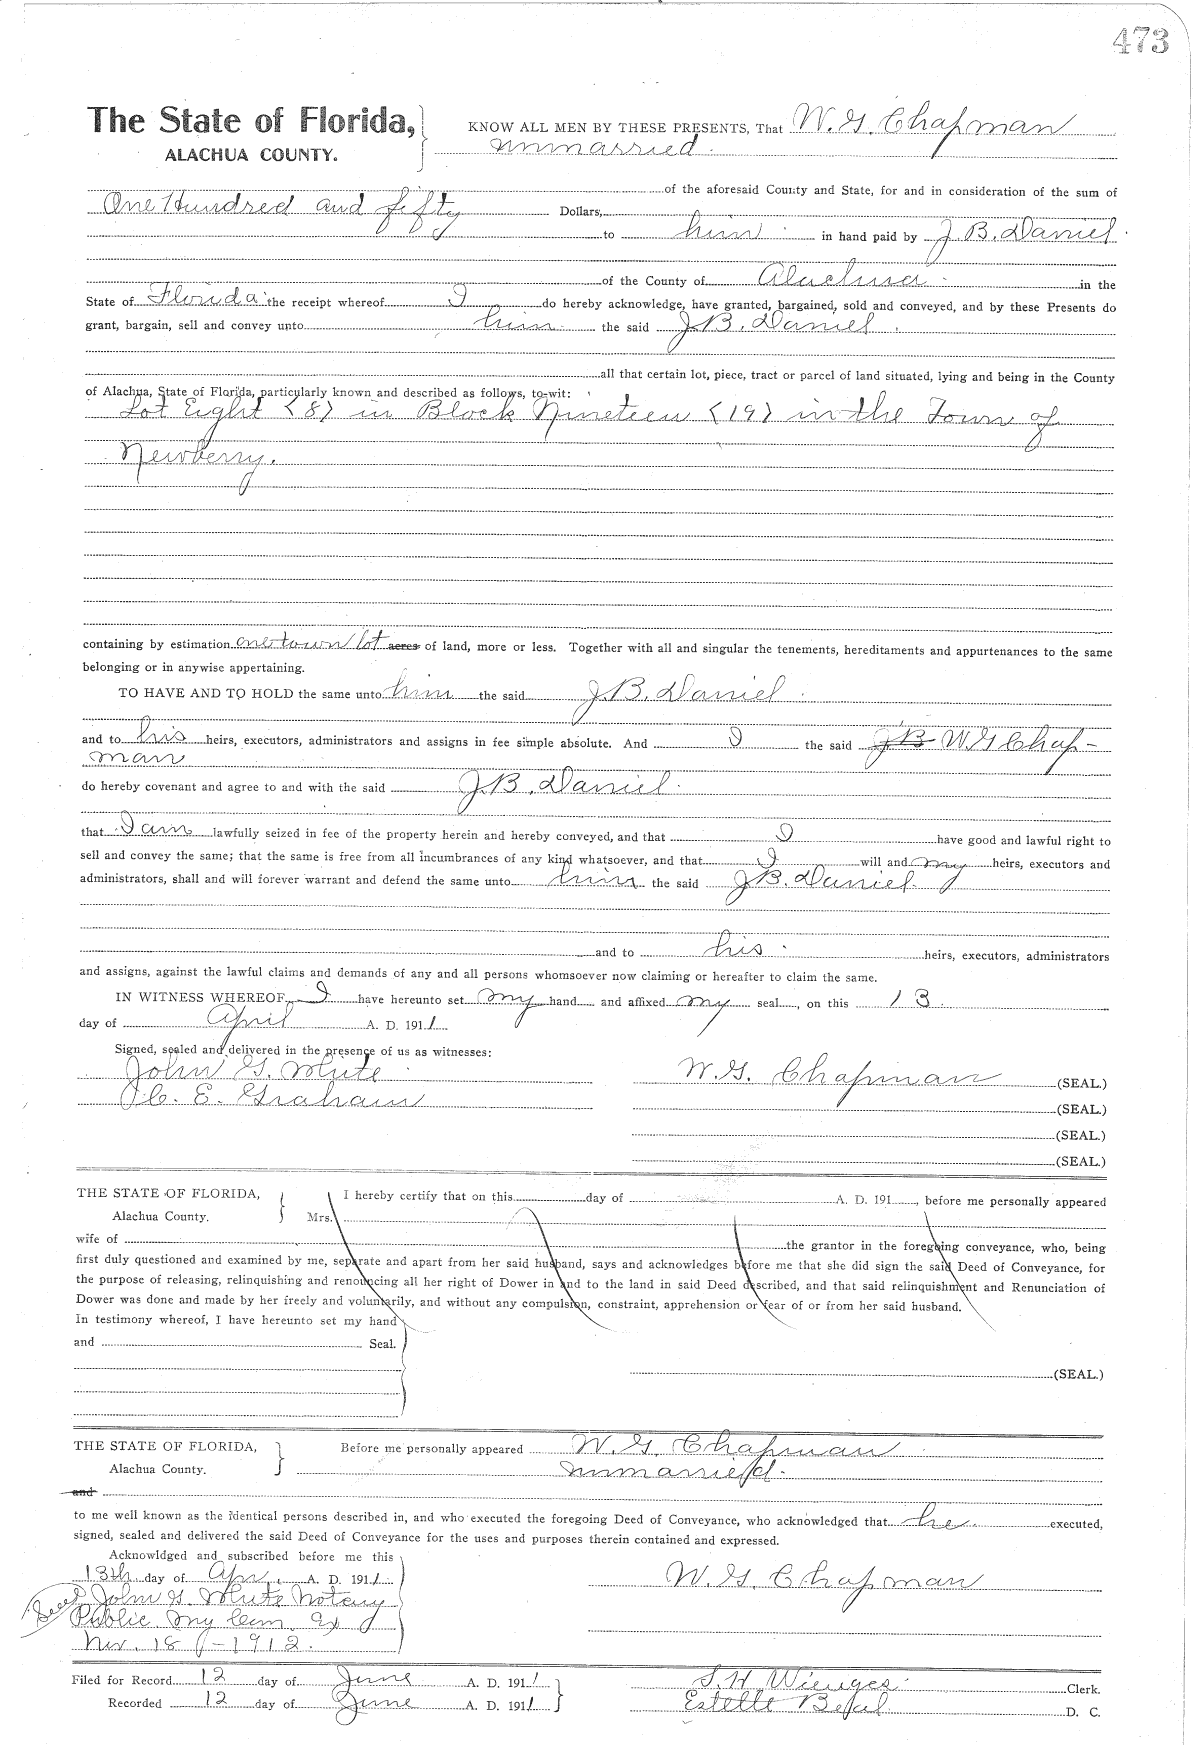 473
The State of Florida,
ALACHUA COUNTY.
KNOW ALL MEN BY THESE PRESENTS, That W. G. Chapman
unmarried.
of the aforesaid County and State, for and in consideration of the sum of
One Hundred and fifty Dollars,
to him in hand paid by J. B. Daniel
of the County of Alachua in the
State of Florida the receipt whereof I do hereby acknowledge, have granted, bargained, sold and conveyed, and by these Presents do
grant, bargain, sell and convey unto him the said J. B. Daniel.
all that certain lot, piece, tract or parcel of land situated, lying and being in the County
of Alachua, State of Florida, particularly known and described as follows, to-wit:
Lot Eight (8) in Block Nineteen (19) in the Town of
Newberry.
containing by estimation one town lot acres of land, more or less. Together with all and singular the tenements, hereditaments and appurtenances to the same
belonging or in anywise appertaining.
TO HAVE AND TO HOLD the same unto him the said J. B. Daniel.
and to his heirs, executors, administrators and assigns in fee simple absolute. And I the said J B W G Chap-
man
do hereby covenant and agree to and with the said J. B. Daniel.
that I am lawfully seized in fee of the property herein and hereby conveyed, and that I have good and lawful right to
sell and convey the same; that the same is free from all incumbrances of any kind whatsoever, and that I will and my heirs, executors and
administrators, shall and will forever warrant and defend the same unto him the said J. B. Daniel.
and to his heirs, executors, administrators
and assigns, against the lawful claims and demands of any and all persons whomsoever now claiming or hereafter to claim the same.
IN WITNESS WHEREOF, I have hereunto set my hand and affixed my seal, on this 13
day of April A. D. 1911.
Signed, sealed and delivered in the presence of us as witnesses:
John G. White W. G. Chapman (SEAL.)
C. E. Graham (SEAL.)
(SEAL.)
(SEAL.)
THE STATE OF FLORIDA,
Alachua County.
I hereby certify that on this day of A. D. 191, before me personally appeared
Mrs.
wife of the grantor in the foregoing conveyance, who, being
first duly questioned and examined by me, separate and apart from her said husband, says and acknowledges before me that she did sign the said Deed of Conveyance, for
the purpose of releasing, relinquishing and renouncing all her right of Dower in and to the land in said Deed described, and that said relinquishment and Renunciation of
Dower was done and made by her freely and voluntarily, and without any compulsion, constraint, apprehension or fear of or from her said husband.
In testimony whereof, I have hereunto set my hand
and Seal.
(SEAL.)
THE STATE OF FLORIDA,
Alachua County.
Before me personally appeared W. G. Chapman
unmarried.
and
to me well known as the identical persons described in, and who executed the foregoing Deed of Conveyance, who acknowledged that he executed,
signed, sealed and delivered the said Deed of Conveyance for the uses and purposes therein contained and expressed.
Acknowldged and subscribed before me this
13th day of Apr. A. D. 1911. W. G. Chapman
Seal John G. White Notary
Public My Com. Ex
Nov. 18 - 1912.
Filed for Record 12 day of June A. D. 1911 S. H. Wienges Clerk.
Recorded 12 day of June A. D. 1911 Estelle D. C.